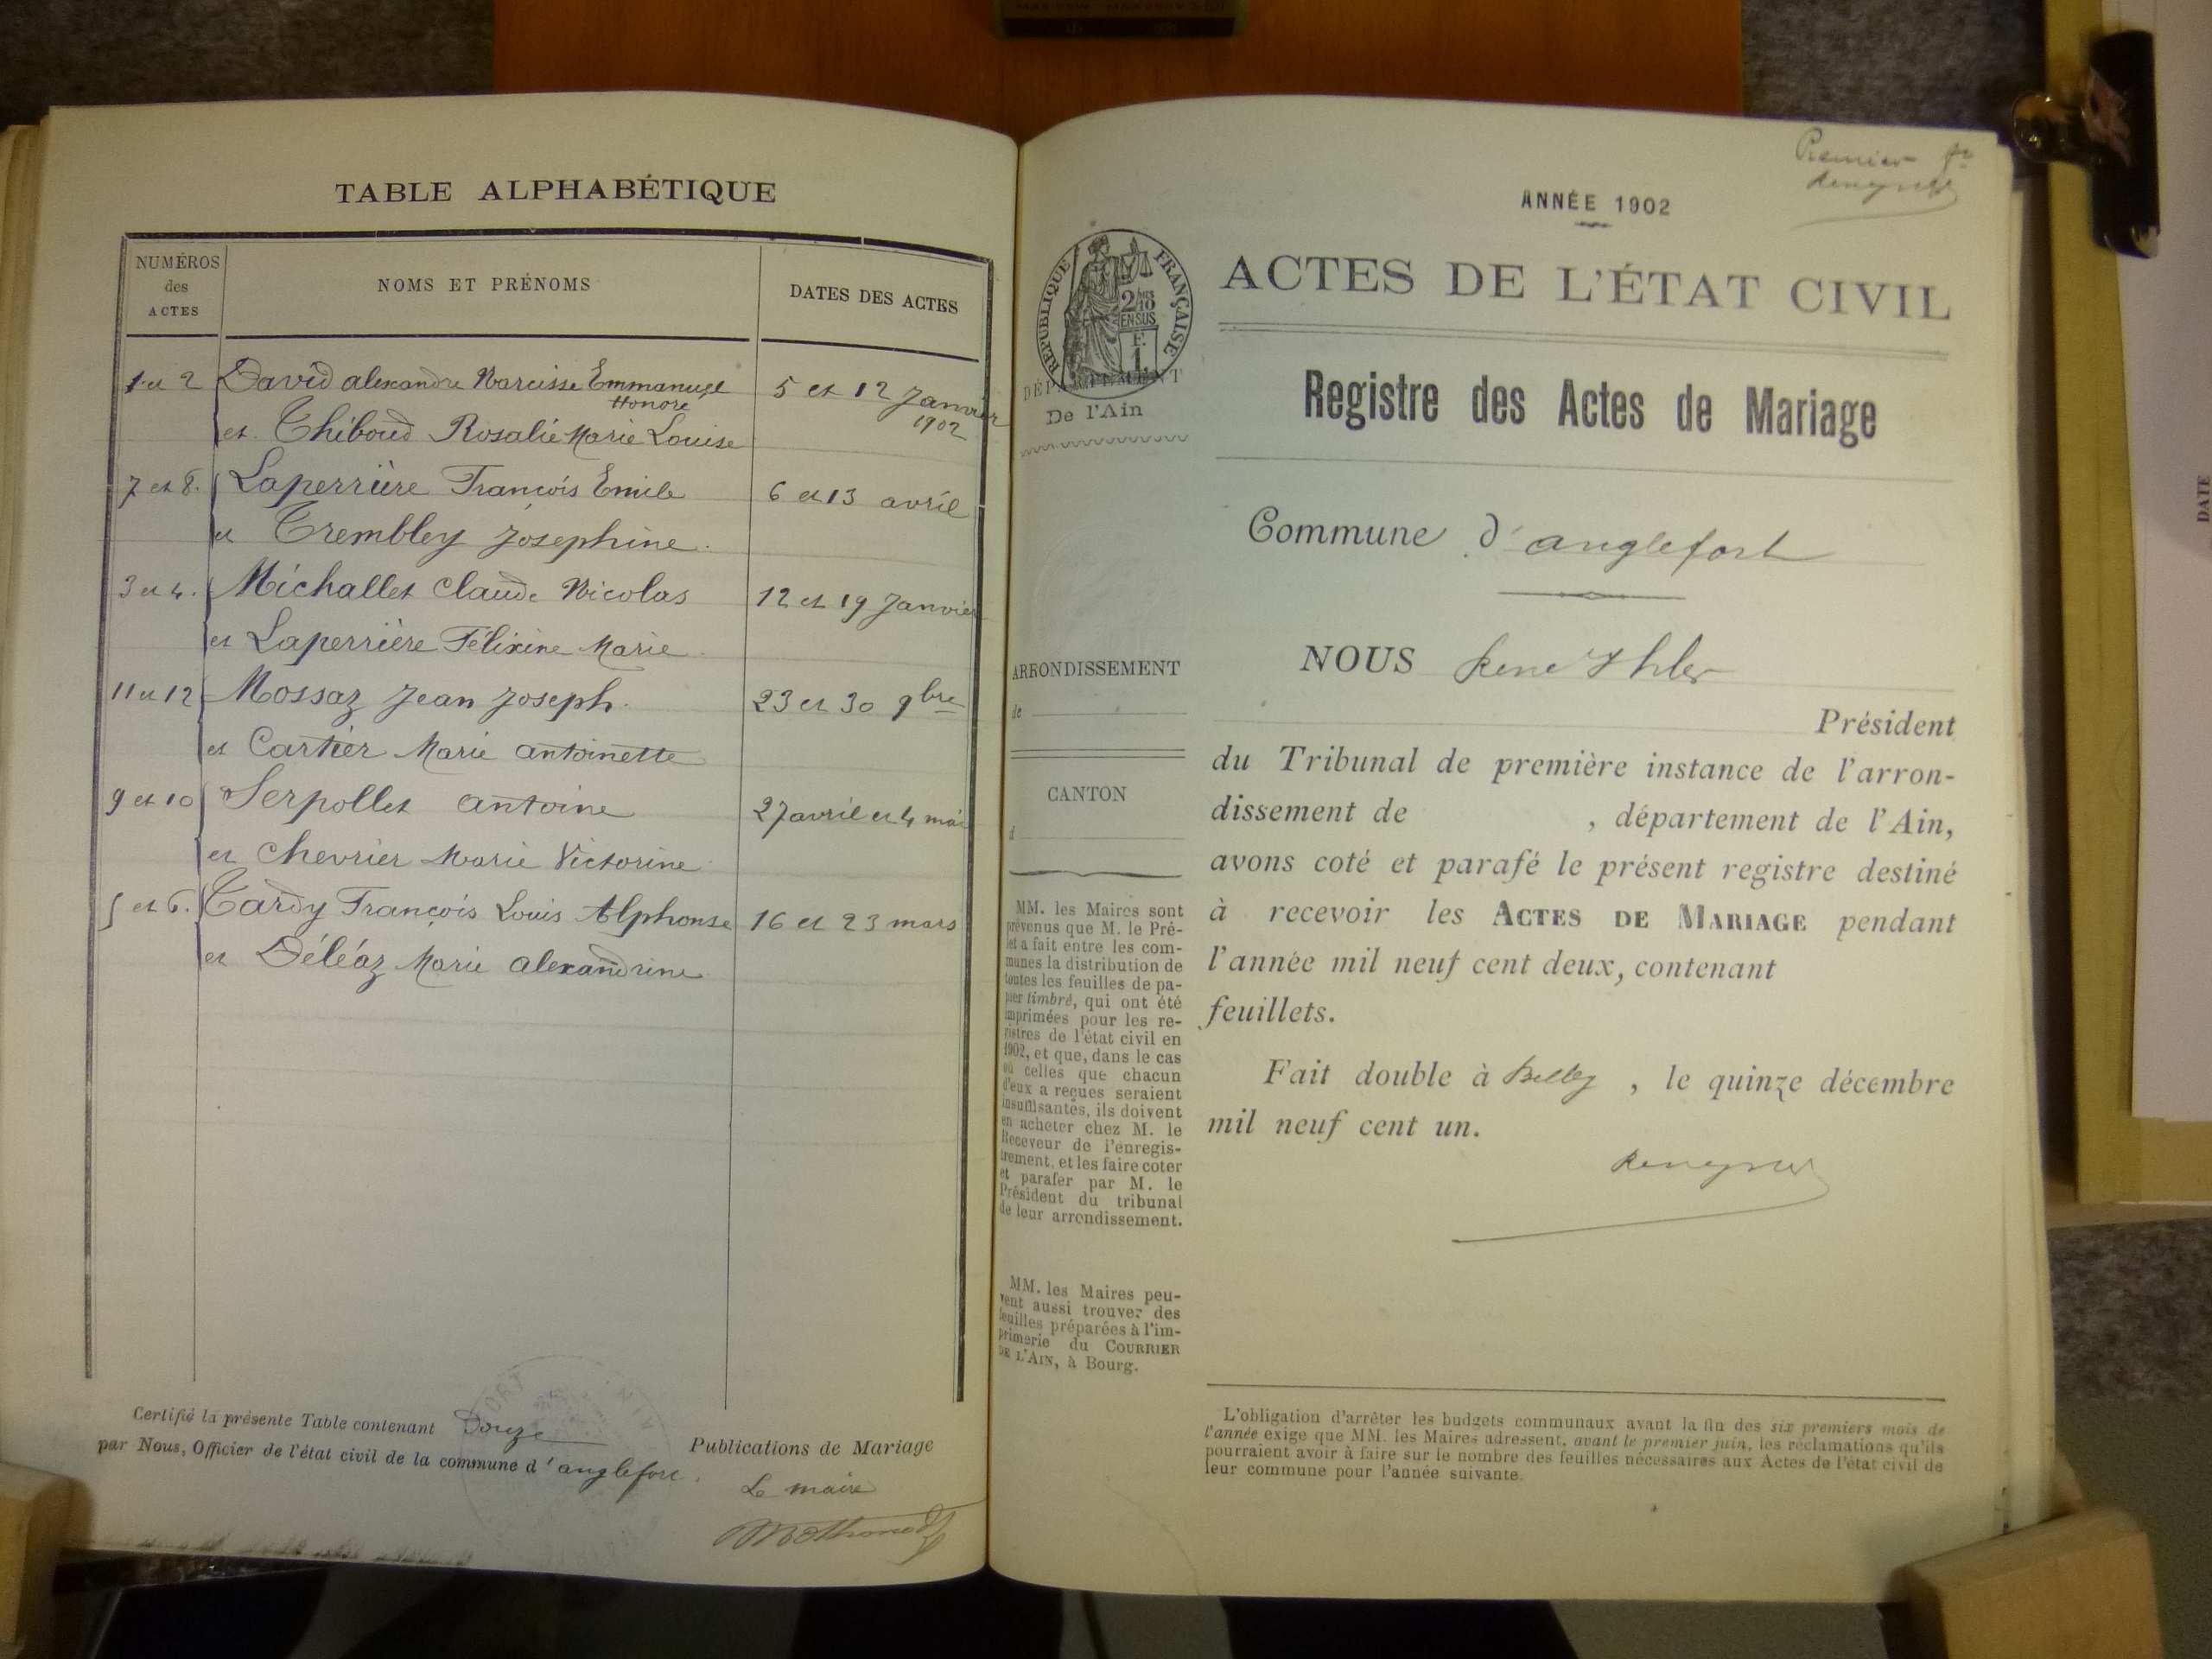 TABLE ALPHABÉTIQUE
NUMÉROS
des
ACTES
NOMS ET PRÉNOMS
DATES DES ACTES
1 et 2 David alexandre Narcisse Emmanuel 5 et 12 Janvier
Honoré 1902
et Thiboud Rosalie Marie Louise
7 et 8. Laperrière François Emile 6 et 13 avril
et Trembley Joséphine.
3 et 4. Michallet Claude Nicolas 12 et 19 Janvier
et Laperrière Félixine Marie
11 et 12 Mossaz Jean Joseph. 23 et 30 9bre
et Cartier Marie antoinette
9 et 10 Serpollet antoine 27 avril et 4 mai
et Chevrier Marie Victorine
5 et 6. Tardy François Louis Alphonse 16 et 23 mars
et Déléaz Marie alexandrine
Certifié la présente Table contenant Douze Publications de Mariage
par Nous, Officier de l'état civil de la commune d'anglefort.
Le maire
Premier
ANNÉE 1902
RÉPUBLIQUE FRANÇAISE
2/10
EN SUS
F.
1.
ACTES DE L'ÉTAT CIVIL
DÉPARTEMENT
De l'Ain
Registre des Actes de Mariage
Commune d'anglefort
NOUS René Ihler
ARRONDISSEMENT
de
Président
du Tribunal de première instance de l'arron-
dissement de , département de l'Ain,
avons coté et parafé le présent registre destiné
à recevoir les ACTES DE MARIAGE pendant
l'année mil neuf cent deux, contenant
feuillets.
Fait double à Belley , le quinze décembre
mil neuf cent un.
CANTON
d
MM. les Maires sont
prévenus que M. le Pré-
fet a fait entre les com-
munes la distribution de
toutes les feuilles de pa-
pier timbré, qui ont été
imprimées pour les re-
gistres de l'état civil en
1902, et que, dans le cas
où celles que chacun
d'eux a reçues seraient
insuffisantes, ils doivent
en acheter chez M. le
Receveur de l'enregis-
trement, et les faire coter
et parafer par M. le
Président du tribunal
de leur arrondissement.
MM. les Maires peu-
vent aussi trouver des
feuilles préparées à l'im-
primerie du COURRIER
DE L'AIN, à Bourg.
L'obligation d'arrêter les budgets communaux avant la fin des six premiers mois de
l'année exige que MM. les Maires adressent, avant le premier juin, les réclamations qu'ils
pourraient avoir à faire sur le nombre des feuilles nécessaires aux Actes de l'état civil de
leur commune pour l'année suivante.
DATE